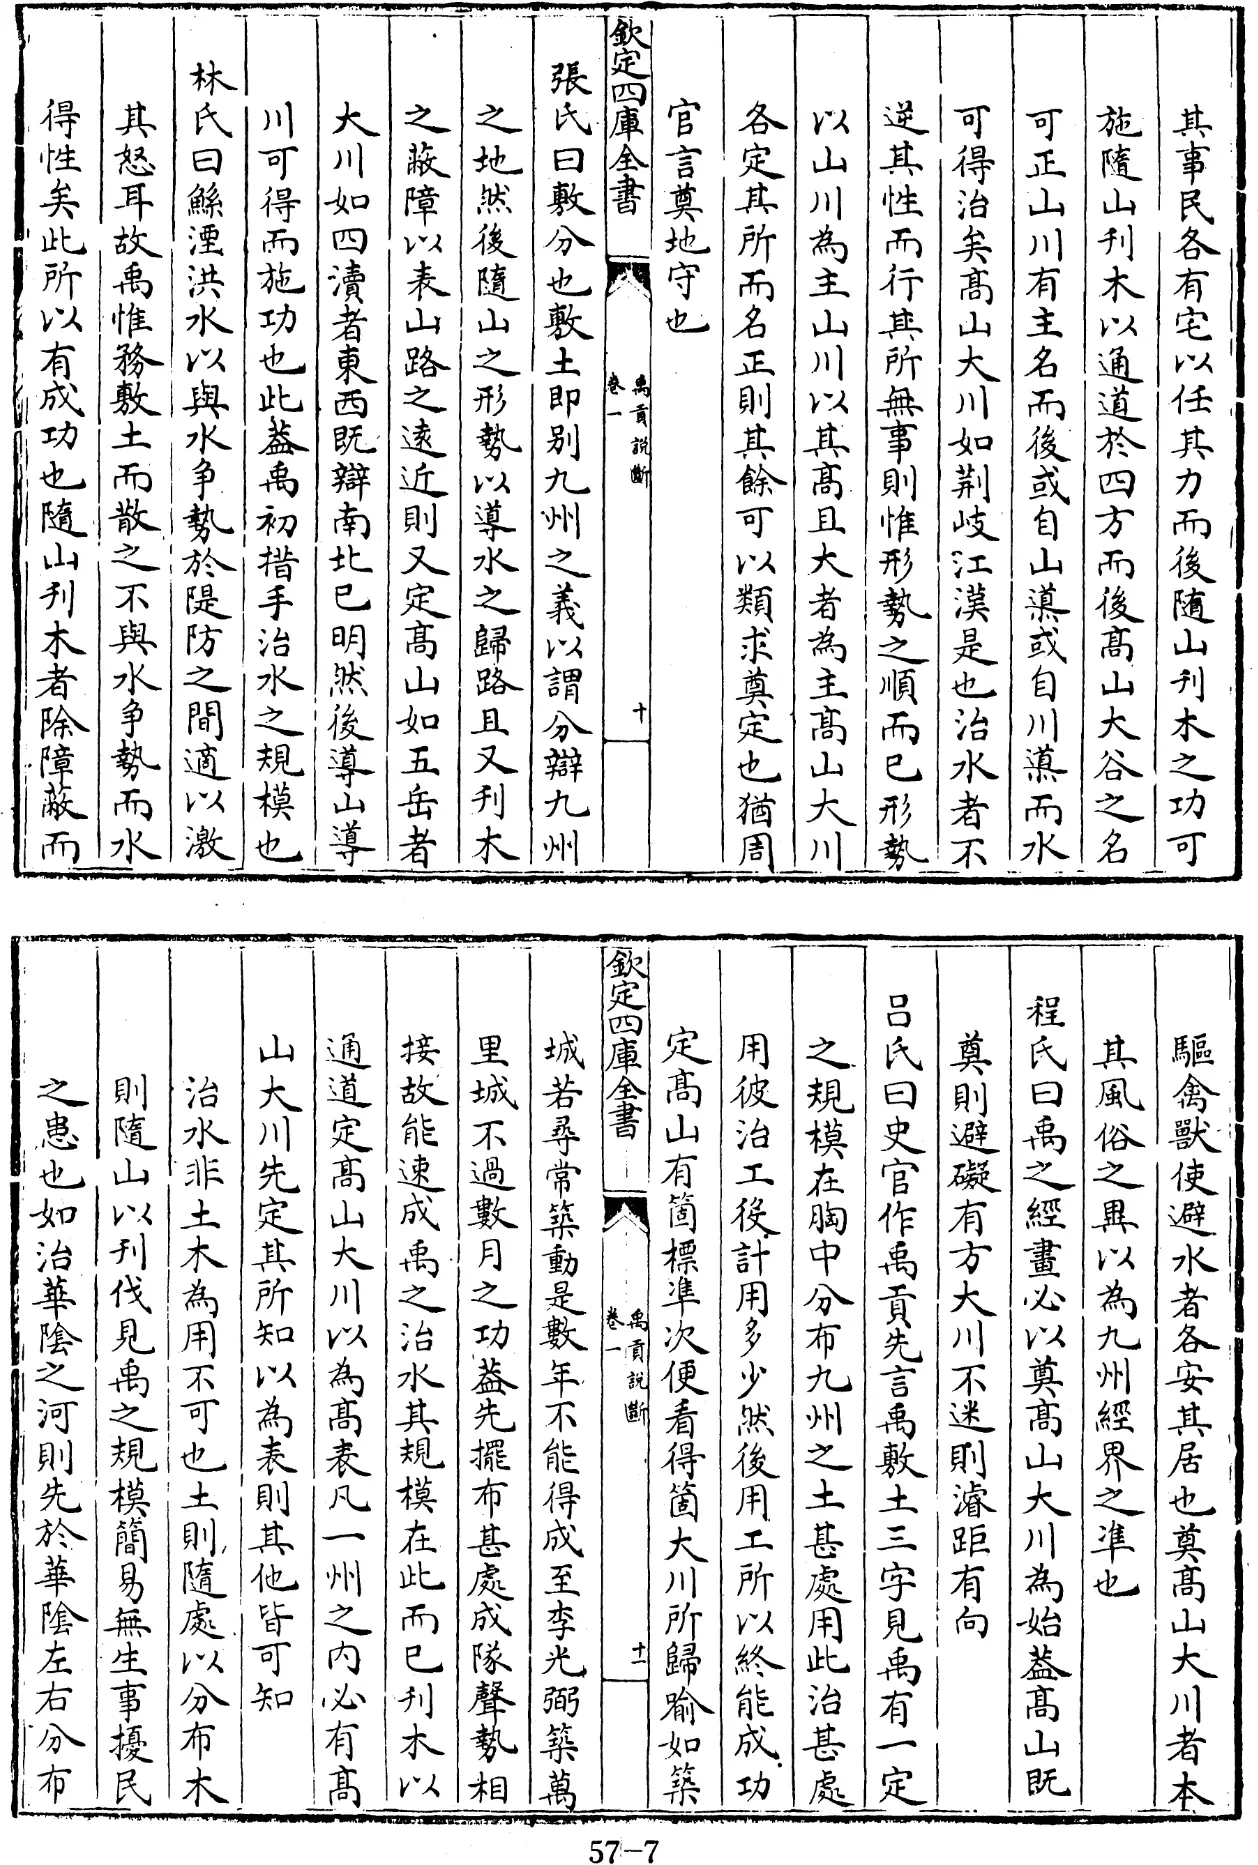 其事民各有宅以任其力而後隨山刋木之功可
施隨山刋木以通道於四方而後髙山大谷之名
可正山川有主名而後或自山𨗳或自川𨗳而水
可得治矣髙山大川如荆岐江漢是也治水者不
逆其性而行其所無事則惟形勢之順而已形勢
以山川為主山川以其髙且大者為主髙山大川
各定其所而名正則其餘可以類求奠定也猶周
官言奠地守也
欽定四庫全書
禹貢説斷
卷一
十
張氏曰敷分也敷土即别九州之義以謂分辯九州
之地然後隨山之形勢以導水之歸路且又刋木
之蔽障以表山路之逺近則又定髙山如五岳者
大川如四瀆者東西既辯南北已明然後導山導
川可得而施功也此葢禹初措手治水之規模也
林氏曰鯀湮洪水以與水爭勢於隄防之間適以激
其怒耳故禹惟務敷土而散之不與水爭勢而水
得性矣此所以有成功也隨山刋木者除障蔽而
驅禽獸使避水者各安其居也奠髙山大川者本
其風俗之異以為九州經界之準也
程氏曰禹之經畫必以奠髙山大川為始葢髙山既
奠則避礙有方大川不迷則濬距有向
吕氏曰史官作禹貢先言禹敷土三字見禹有一定
之規模在胸中分布九州之土甚處用此治甚處
用彼治工役計用多少然後用工所以終能成功
定髙山有箇標準次便看得箇大川所歸喻如築
欽定四庫全書
禹貢説斷
卷一
十一
城若尋常築動是數年不能得成至李光弼築萬
里城不過數月之功葢先擺布甚處成隊聲勢相
接故能速成禹之治水其規模在此而已刋木以
通道定髙山大川以為髙表凡一州之内必有髙
山大川先定其所知以為表則其他皆可知
治水非土木為用不可也土則隨處以分布木
則隨山以刋伐見禹之規模簡易無生事擾民
之患也如治華陰之河則先於華陰左右分布
57-7